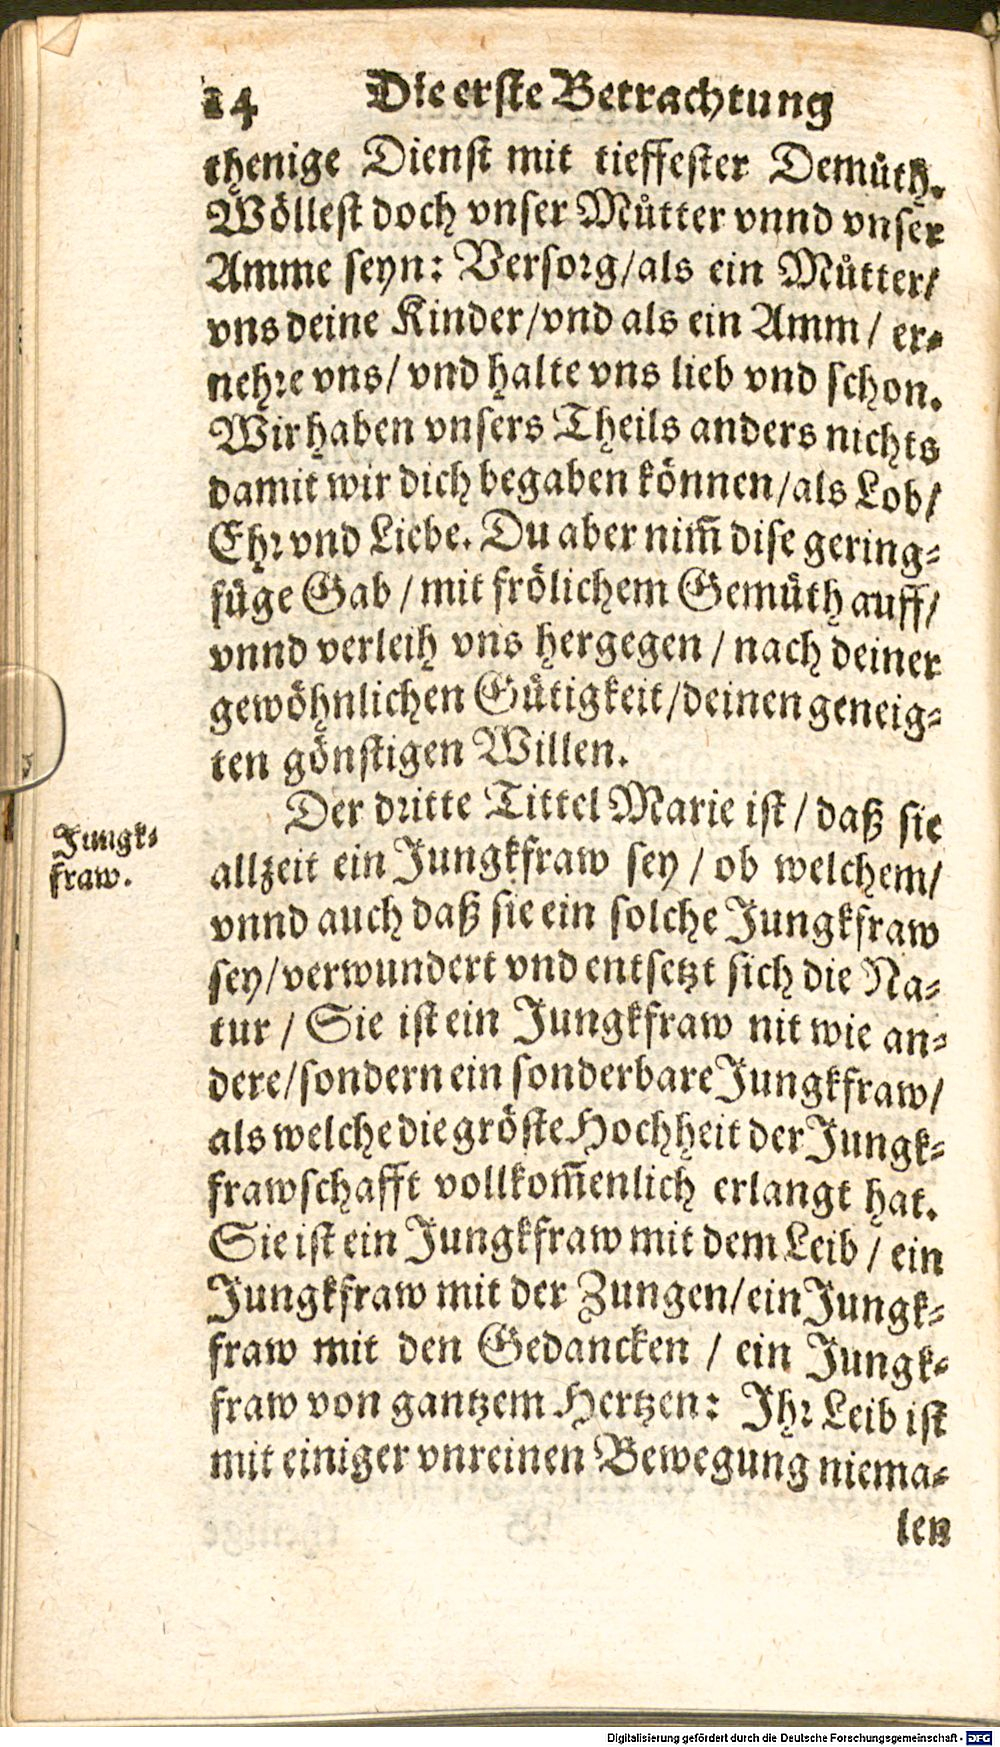 24 Die erste Betrachtung
thenige Dienst mit tieffester Demůth.
Wöllest doch vnser Můtter vnnd vnser
Amme seyn: Versorg/als ein Můtter/
vns deine Kinder/vnd als ein Amm / er-
nehre vns/ vnd halte vns lieb vnd schon.
Wir haben vnsers Theils anders nichts
damit wir dich begaben können/als Lob/
Ehr vnd Liebe. Du aber nim̃ dise gering-
füge Gab / mit frölichem Gemůth auff/
vnnd verleih vns hergegen / nach deiner
gewöhnlichen Gütigkeit/deinen geneig-
ten gönstigen Willen.
Der dritte Tittel Marie ist / daß sie
Jungk-
fraw.
allzeit ein Jungkfraw sey / ob welchem/
vnnd auch daß sie ein solche Jungkfraw
sey/verwundert vnd entsetzt sich die Na-
tur / Sie ist ein Jungkfraw nit wie an-
dere/sondern ein sonderbare Jungkfraw/
als welche die gröste Hochheit der Jungk-
frawschafft vollkom̃enlich erlangt hat.
Sie ist ein Jungkfraw mit dem Leib / ein
Jungkfraw mit der Zungen/ein Jungk-
fraw mit den Gedancken / ein Jungk-
fraw von gantzem Hertzen: Ihr Leib ist
mit einiger vnreinen Bewegung niema-
len
Digitalisierung gefördert durch die Deutsche Forschungsgemeinschaft - DFG